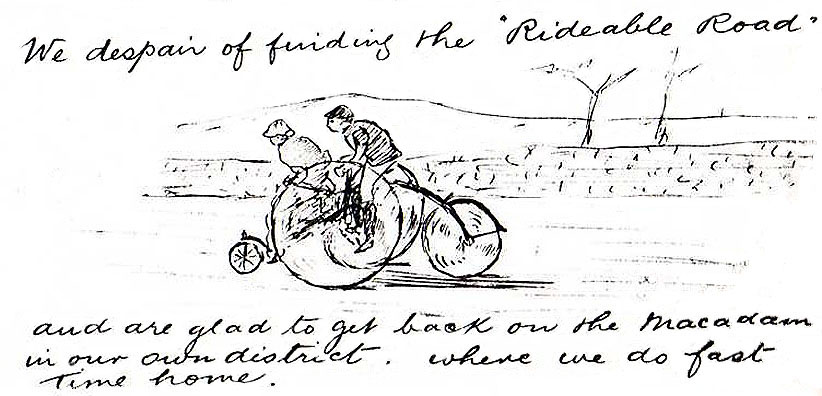 We despair of finding the "Rideable Road"
and are glad to get back on the Macadam
in our own district. where we do fast
Time home.